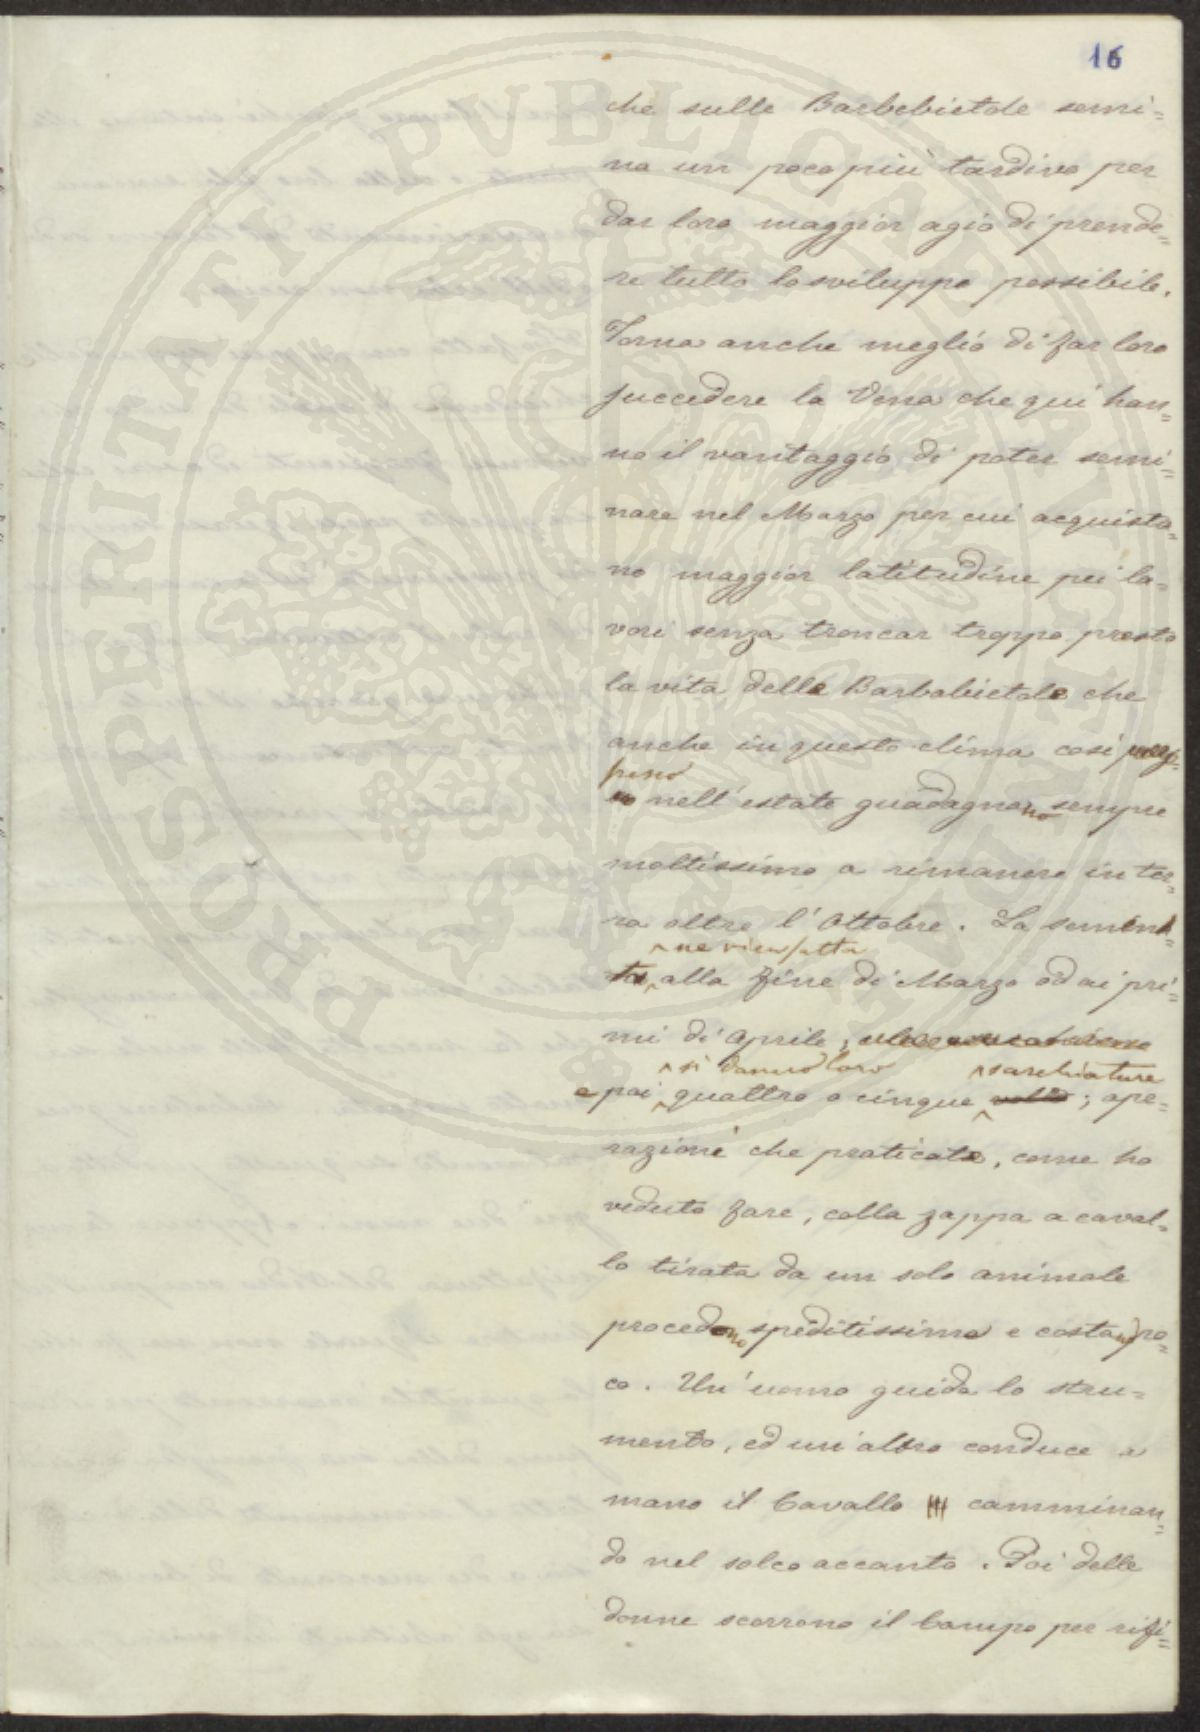 16
che sulle Barbebietole semi=
na un poco piu tardivo per
dar loro maggior agio di prende=
re tutto lo sviluppo possibile.
Torna anche meglio di far loro
succedere la Vena che qui han=
no il vantaggio di poter semi=
nare nel Marzo per cui acquista=
no maggior latitudine pei la=
vori senza troncar troppo presto
la vita delle Barbabietole che
anche in questo clima così
nell'estate guadagnano sempre
moltissimo a rimanere in ter=
ra oltre l'Ottobre. La sement=
ne vien fatta
ta alla fine di Marzo od ai pri=
mi di Aprile;
si danno loro sarchiature
e poi quattro o cinque volte; ope=
razioni che praticate, come ho
veduto fare, colla zappa a caval=
lo tirata da un solo animale
procedono speditissime e costano po=
co. Un'uomo guida lo stru=
mento, ed un'altro conduce a
mano il Cavallo camminan=
do nel solco accanto. Poi delle
donne scorrono il Campo per rifi=
PROSPERITATI PVBLICAE AVGENDAE